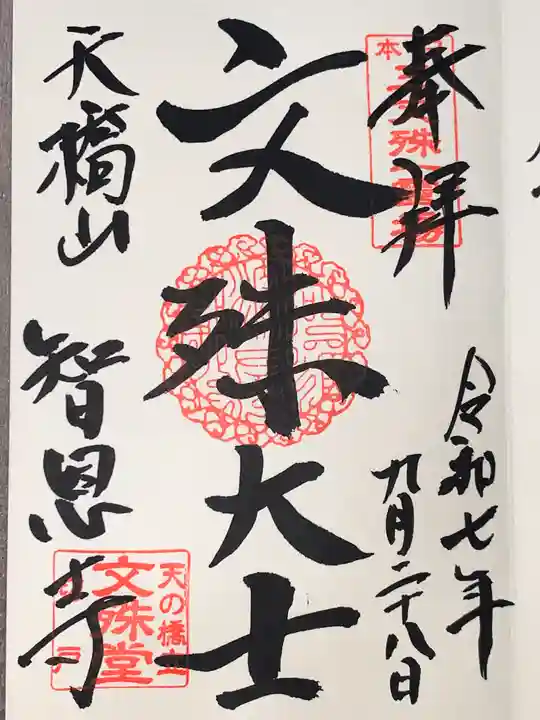 奉拜
令和七年
九月二十八日
文殊大士
天橋山
智恩寺
天の橋立
文殊堂